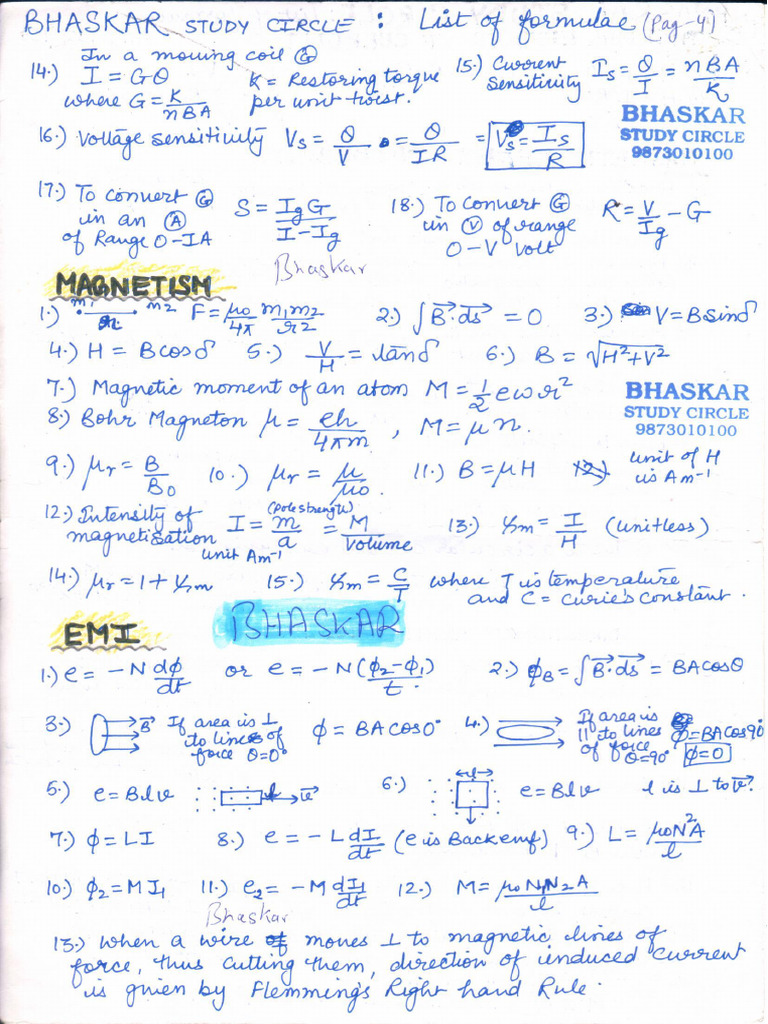 BHASKAR STUDY CIRCLE : List of formulae (Pag-4)
In a moving coil Ⓖ
14.) I = Gθ
where G = K/nBA
K = Restoring torque per unit twist.
15.) Current Sensitivity Is = θ/I = nBA/K
BHASKAR
STUDY CIRCLE
9873010100
16.) Voltage sensitivity Vs = θ/V = θ/IR = Vs = Is/R
17.) To convert Ⓖ
in an Ⓐ
of Range 0-IA
S = IgG/I-Ig
18.) To convert Ⓖ
in Ⓥ of range
0-V volt
R = V/Ig - G
Bhaskar
MAGNETISM
1.) m1 m2 r F = μo/4π m1m2/r2
2.) ∫B⃗·ds⃗ = 0
3.) V = B sinδ
4.) H = B cosδ
5.) V/H = tanδ
6.) B = √H²+V²
7.) Magnetic moment of an atom M = 1/2 eωr²
BHASKAR
STUDY CIRCLE
9873010100
8.) Bohr Magneton μ = eh/4πm , M = μn.
9.) μr = B/B0
10.) μr = μ/μo.
11.) B = μH
12.)
unit of H
is Am⁻¹
12.) Intensity of
magnetisation
unit Am⁻¹
I = m/a (pole strength) = M/volume
13.) χm = I/H (unitless)
14.) μr = 1 + χm
15.) χm = C/T where T is temperature
and C = Curie's constant.
BHASKAR
EMI
1.) e = -N dφ/dt or e = -N(φ2-φ1)/t.
2.) φB = ∫B⃗·ds⃗ = BA cosθ
3.) B⃗ If area is ⊥
to lines of
force θ=0°
φ = BA cos0°
4.) If area is
|| to lines
of force
θ=90°
φ=BA cos90°
φ=0
5.) e = Blv l v⃗
6.) l e = Blv l is ⊥ to v⃗?
7.) φ = LI
8.) e = -L dI/dt (e is Back emf)
9.) L = μoN²A/l
10.) φ2 = MI1
11.) e2 = -M dI1/dt
12.) M = μoN1N2A/l
Bhaskar
13.) When a wire moves ⊥ to magnetic lines of
force, thus cutting them, direction of induced current
is given by Flemming's Right hand Rule.